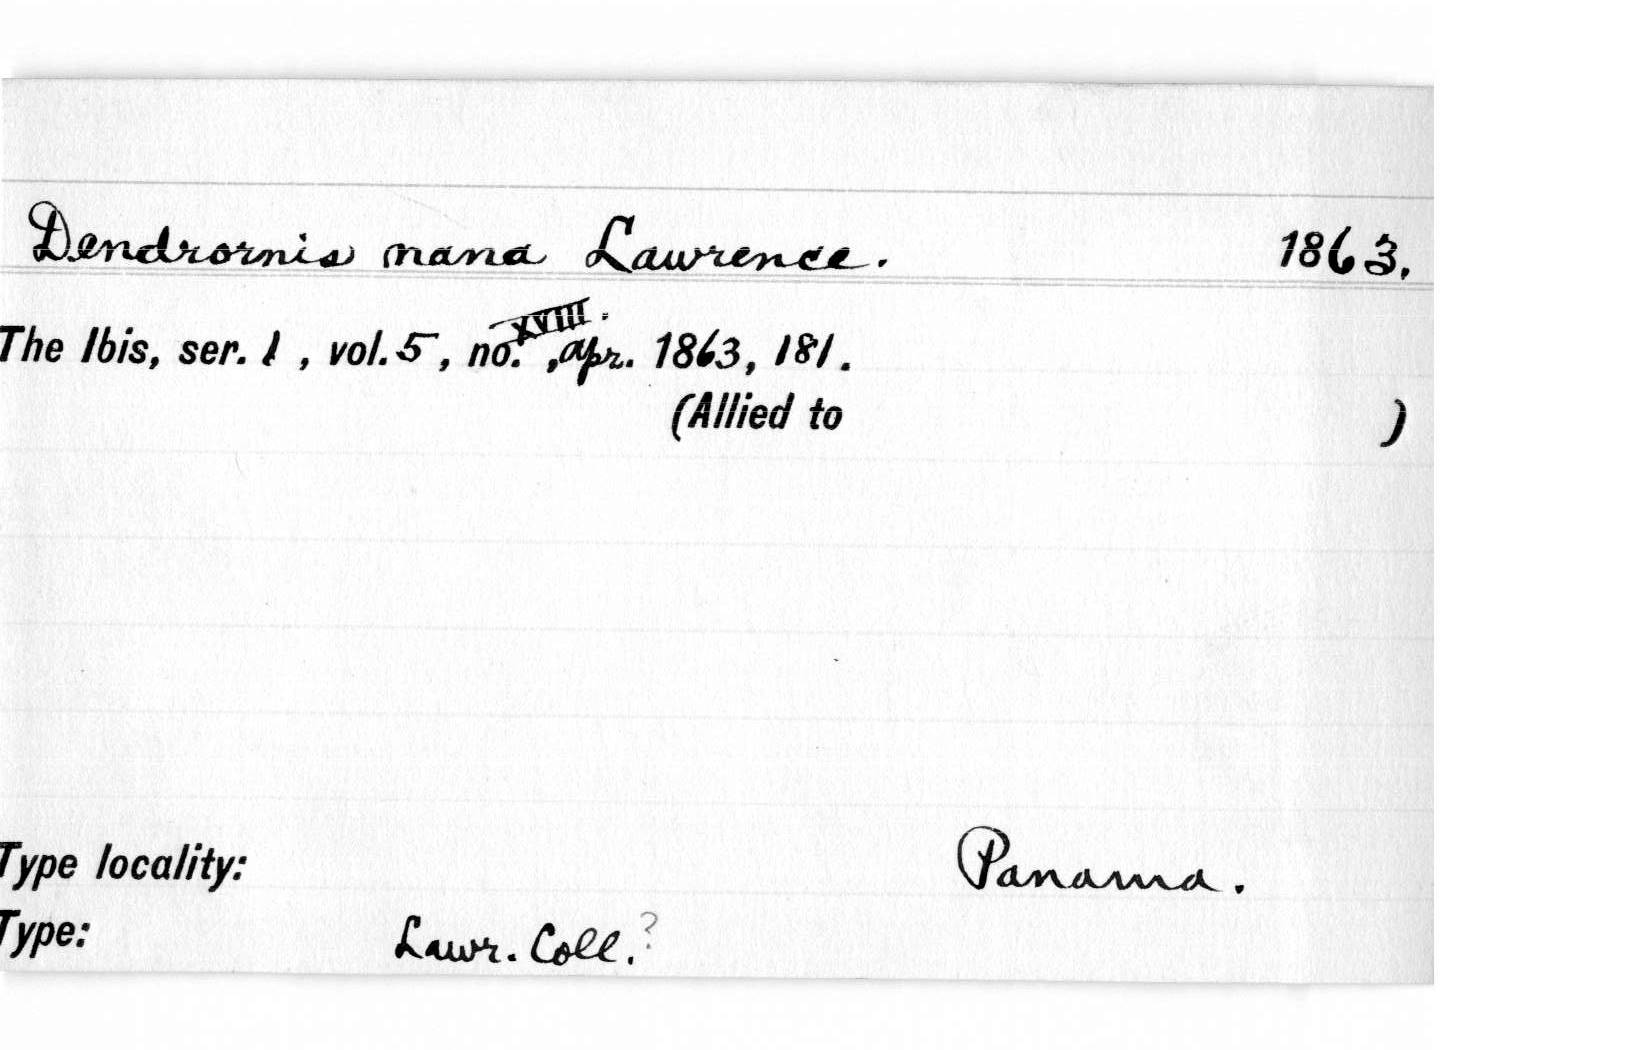 Dendrornis nana Lawrence. 1863.
The Ibis, ser. 1, vol. 5, no. XVIII., apr. 1863, 181.
(Allied to )
Type locality: Panama.
Type: Lawr. Coll.?